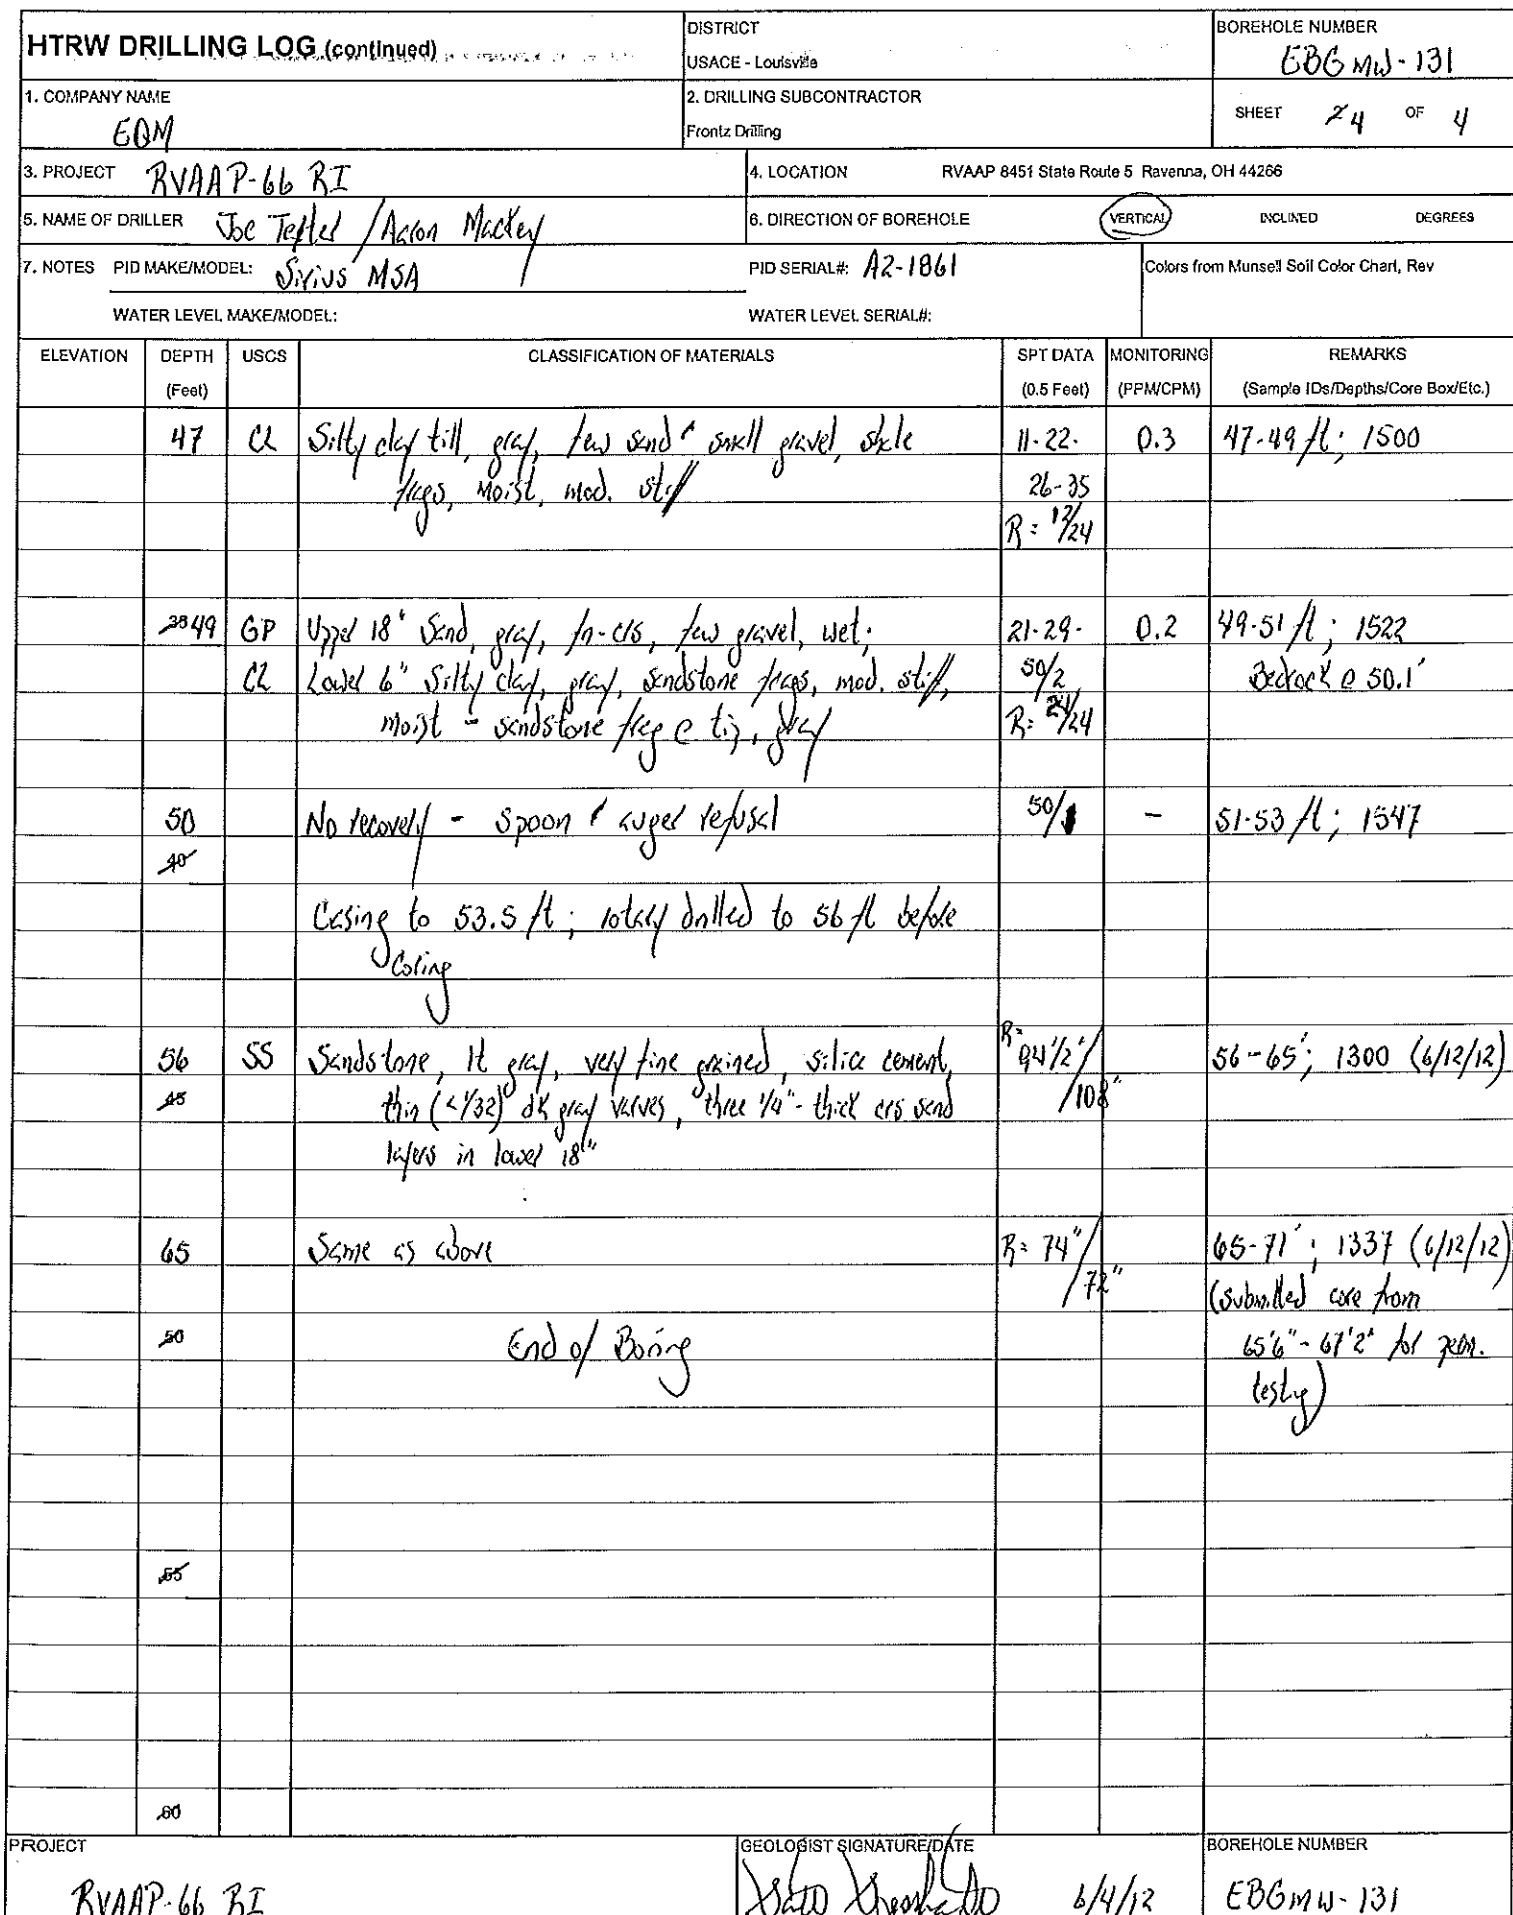 HTRW DRILLING LOG (continued)
DISTRICT
USACE - Louisville
BOREHOLE NUMBER
EBGMW-131
1. COMPANY NAME
EQM
2. DRILLING SUBCONTRACTOR
Frontz Drilling
SHEET 4 OF 4
3. PROJECT RVAAP-66 RI
4. LOCATION RVAAP 8451 State Route 5 Ravenna, OH 44266
5. NAME OF DRILLER Joe / Aaron Mackey
6. DIRECTION OF BOREHOLE VERTICAL INCLINED DEGREES
7. NOTES PID MAKE/MODEL: Sirius MSA
PID SERIAL#: A2-1861
Colors from Munsell Soil Color Chart, Rev
WATER LEVEL MAKE/MODEL:
WATER LEVEL SERIAL#:
ELEVATION DEPTH USCS CLASSIFICATION OF MATERIALS SPT DATA MONITORING REMARKS
(Feet) (0.5 Feet) (PPM/CPM) (Sample IDs/Depths/Core Box/Etc.)
47 CL Silty clay till, gray, few sand & small gravel, shale 11-22- 0.3 47-49 ft; 1500
frags, moist, mod. stiff 26-35
R= 12/24
49 GP Upper 18" Sand, gray, fn-crs, few gravel, wet; 21-29- 0.2 49-51 ft; 1522
CL Lower 6" Silty clay, gray, sandstone frags, mod. stiff, 50/2 Bedrock @ 50.1'
moist - sandstone frag @ tip, gray R= 24/24
50 No recovery - spoon & auger refusal 50/ - 51-53 ft; 1547
40
Casing to 53.5 ft; rotary drilled to 56 ft before
coring
56 SS Sandstone, lt gray, very fine grained, silica cement, R= 94 1/2"/ 56-65'; 1300 (6/12/12)
45 thin (<1/32) dk gray varves, three 1/4"-thick crs sand /108"
layers in lower 18"
65 Same as above R= 74"/ 65-71'; 1337 (6/12/12)
/72" (submitted core from
50 End of Boring 65'6"-67'2" for perm.
testing)
55
60
PROJECT
RVAAP-66 RI
GEOLOGIST SIGNATURE/DATE
6/4/12
BOREHOLE NUMBER
EBGMW-131